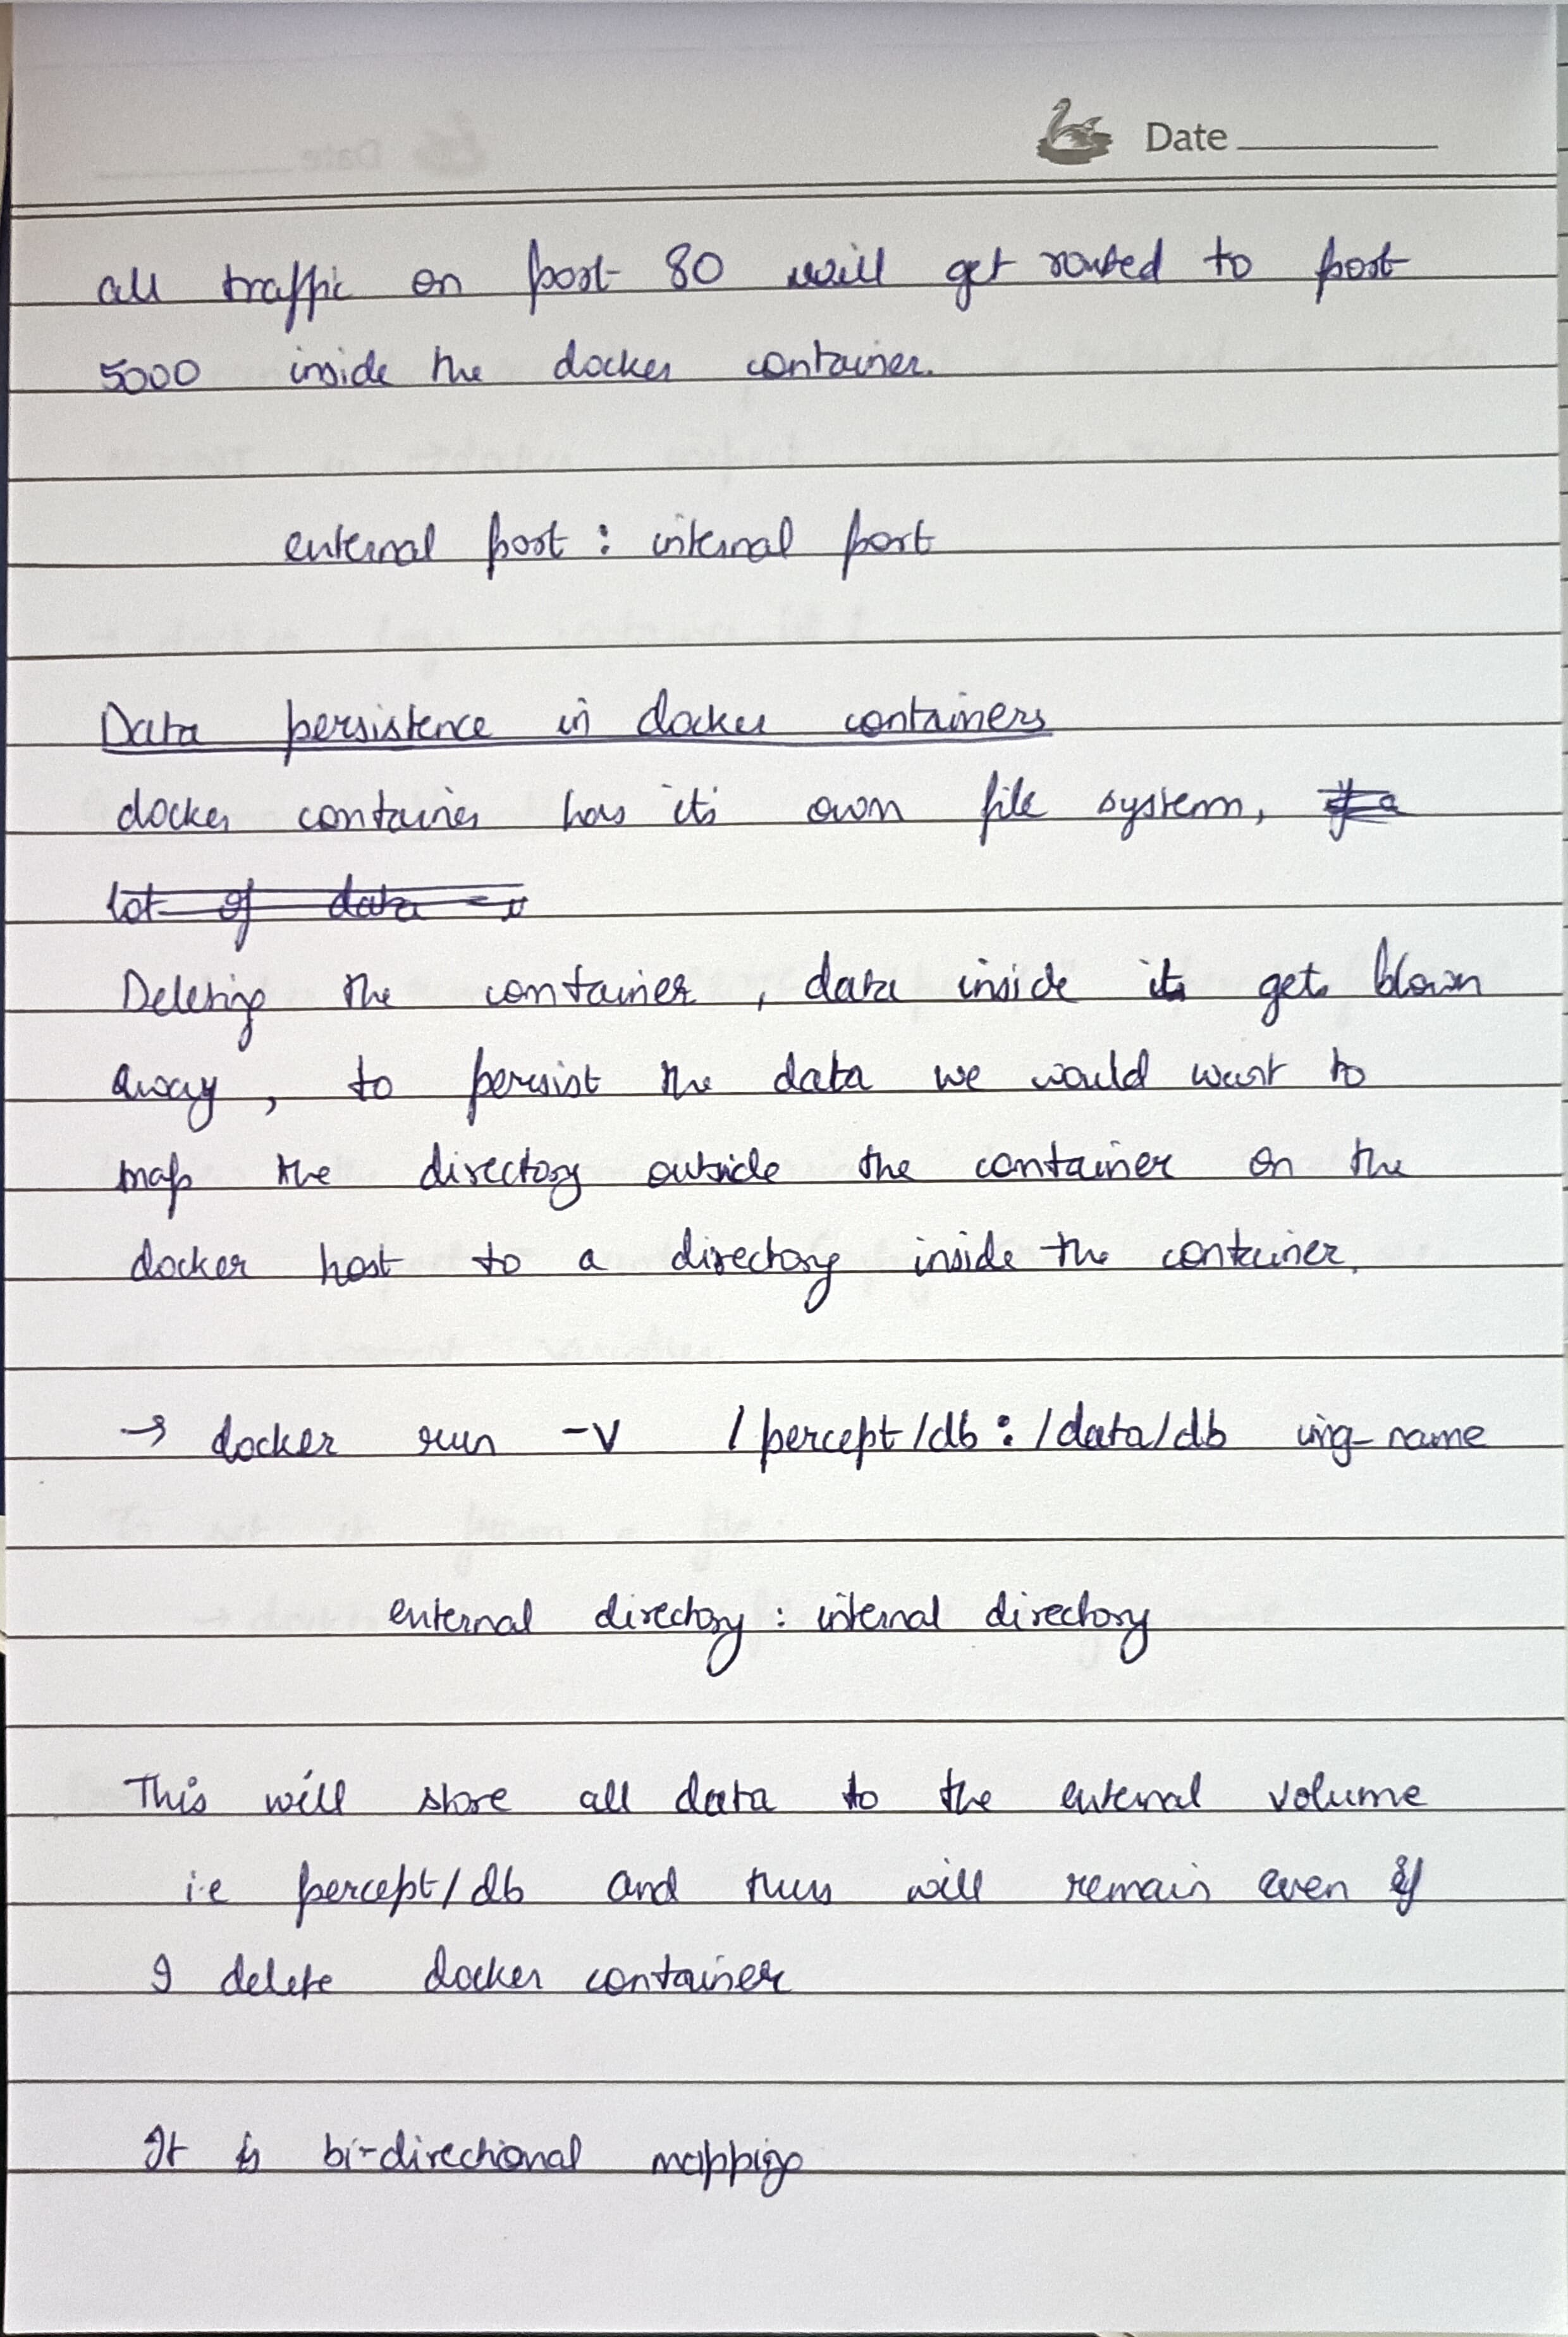 Date
all traffic on port 80 will get routed to port
5000 inside the docker container.
external port : internal port
Data persistence in docker containers
docker container has its own file system, if a
lot of data
Deleting the container , data inside it gets blown
away , to persist the data we would want to
map the directory outside the container on the
docker host to a directory inside the container.
→ docker run -v /percept/db : /data/db img-name
external directory : internal directory
This will store all data to the external volume
i.e percept/db and thus will remain even if
I delete docker container
It is bi-directional mapping